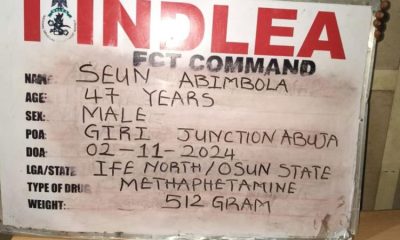 NDLEA
FCT COMMAND
NAME: SEUN ABIMBOLA
AGE: 47 YEARS
SEX: MALE
POA: GIRI JUNCTION ABUJA
DOA: 02-11-2024
LGA/STATE: IFE NORTH/OSUN STATE
TYPE OF DRUG METHAPHETAMINE
WEIGHT: 512 GRAM